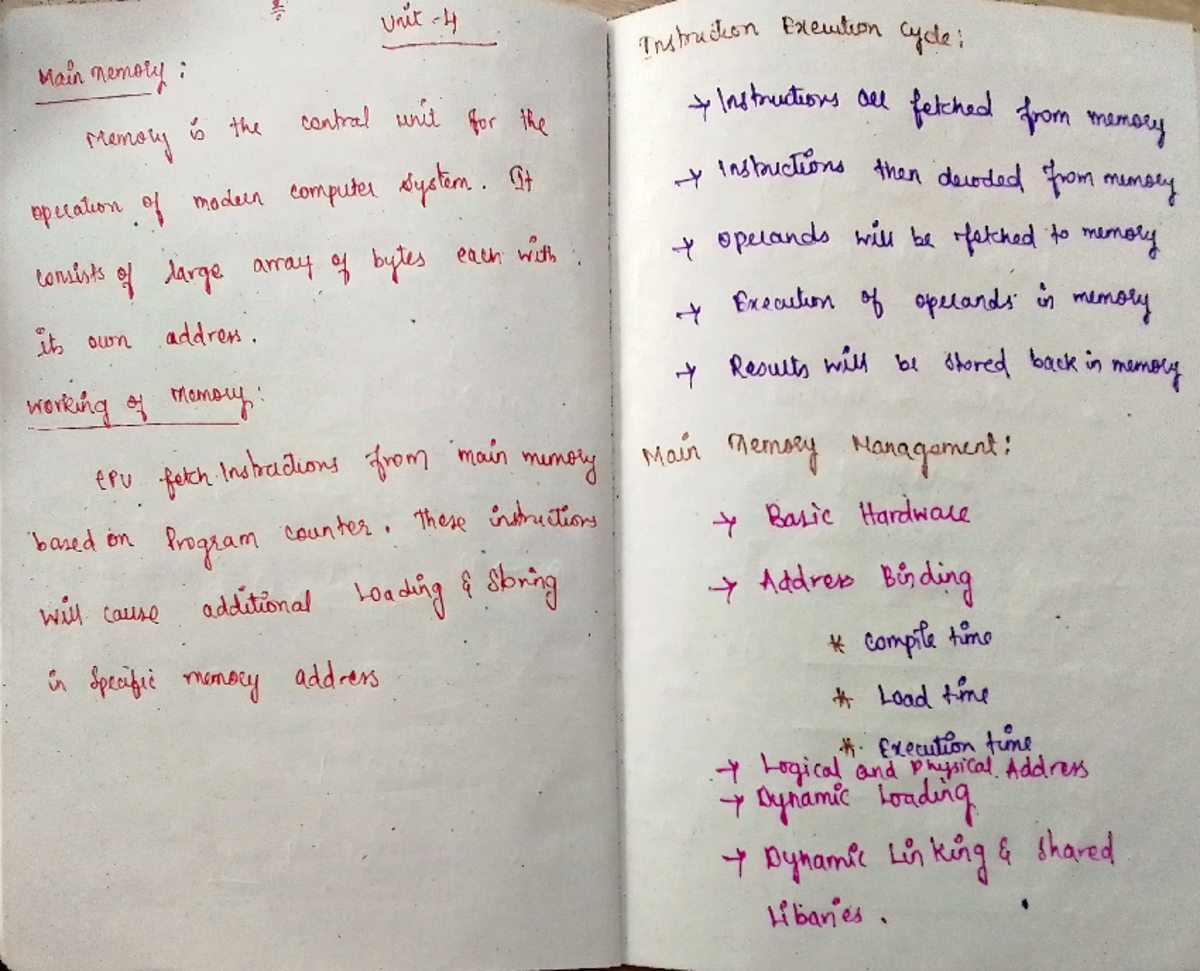 Unit - 4
Main Memory :
Memory is the central unit for the
operation of modern computer system. It
consists of large array of bytes each with
its own address.
Working of Memory:
CPU fetch Instructions from main memory
based on Program counter. These instructions
will cause additional Loading & Storing
in specific memory address
Instruction Execution Cycle:
→ Instructions are fetched from memory
→ Instructions then decoded from memory
→ Operands will be fetched to memory
→ Execution of operands in memory
→ Results will be stored back in memory
Main Memory Management:
→ Basic Hardware
→ Address Binding
* Compile time
* Load time
* Execution time
→ Logical and Physical Address
→ Dynamic Loading
→ Dynamic Linking & Shared
Libaries.